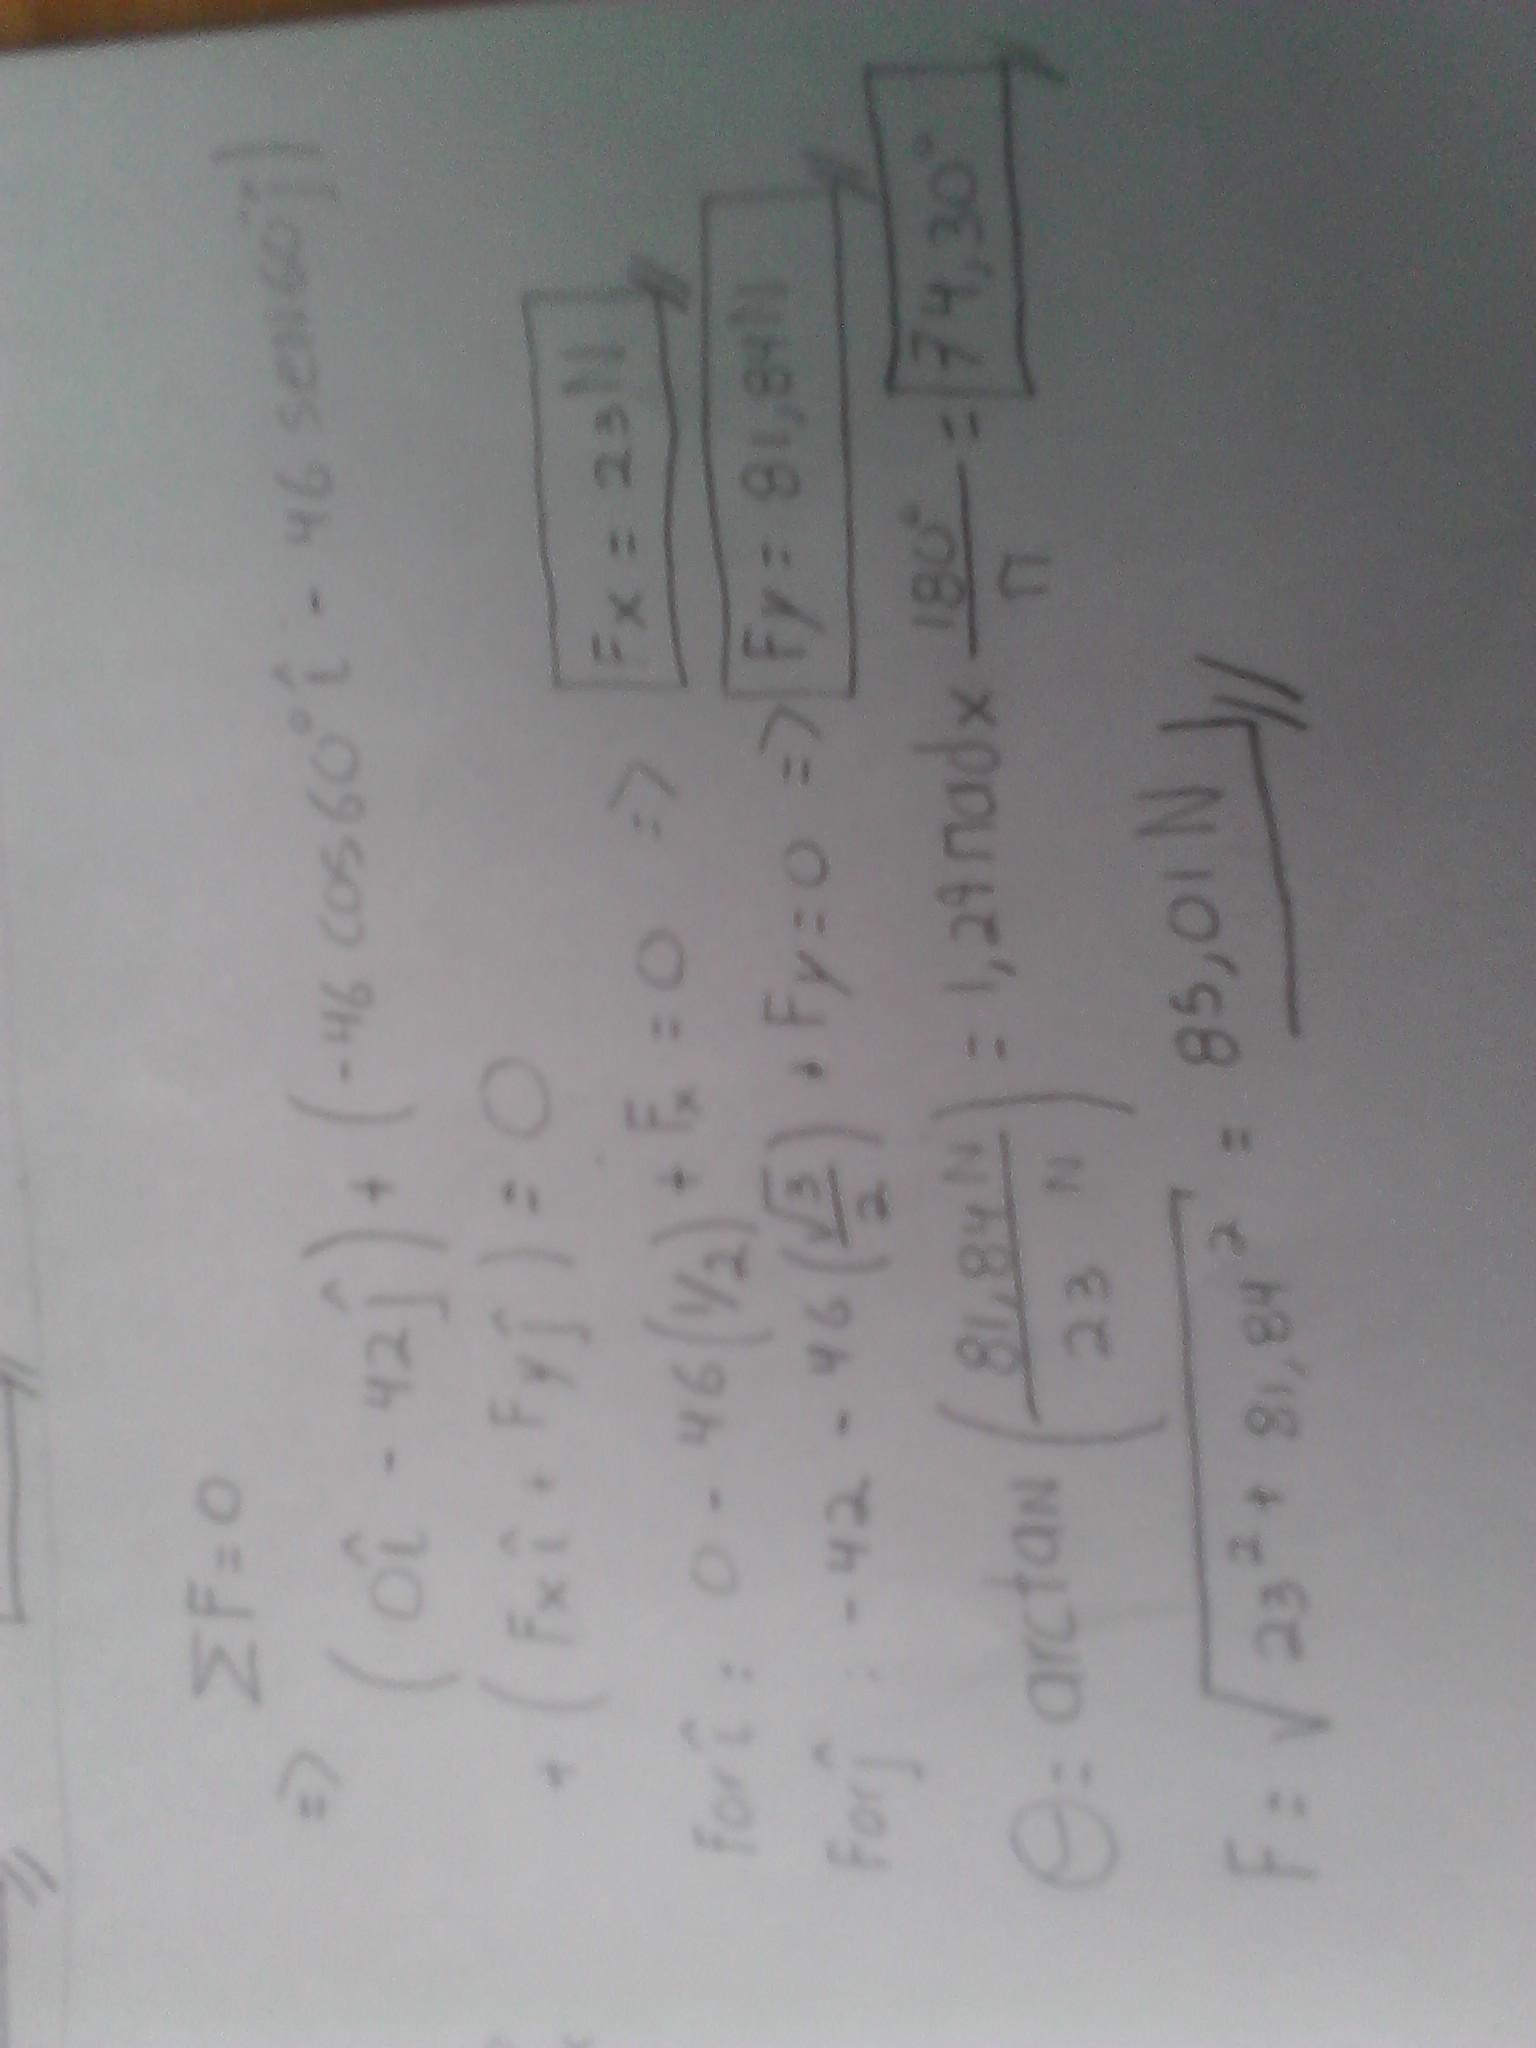 ΣF=0
=> (0î - 42ĵ) + (-46 cos60° î - 46 sen60°ĵ)
+ (Fxî + Fyĵ) = 0
For î: 0 - 46(1/2) + Fx = 0 => Fx = 23N
For ĵ: -42 - 46(√3/2) + Fy=0 => Fy = 81,84N
θ= arctan (81,84N/23 N) = 1,29 rad x 180°/π = 74,30°
F= √23² + 81,84² = 85,01N